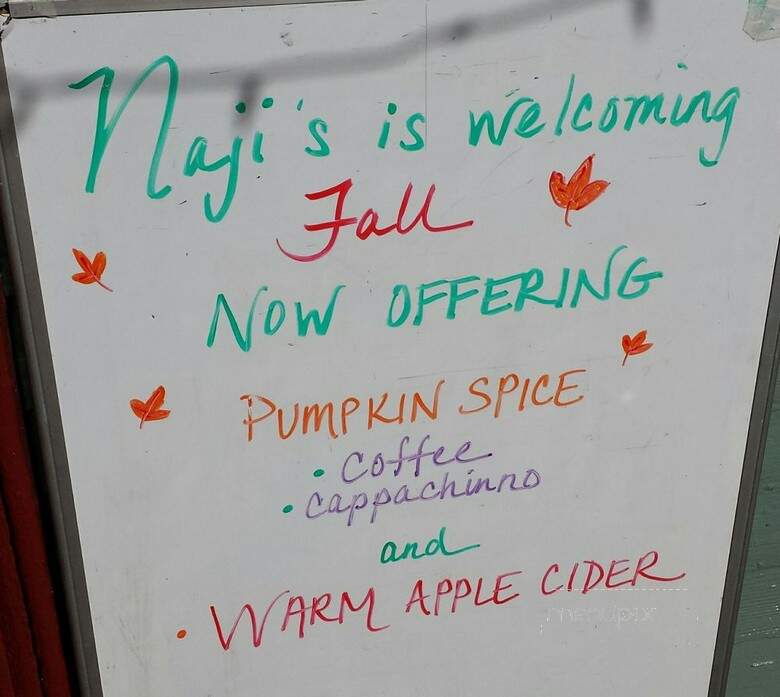 Naji's is welcoming
Fall
NOW OFFERING
PUMPKIN SPICE
• Coffee
• Cappachinno
and
• WARM APPLE CIDER
menupix